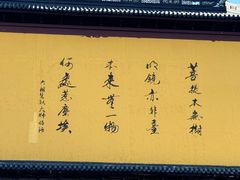 菩提本無樹
明鏡亦非臺
本來無一物
何處惹塵埃